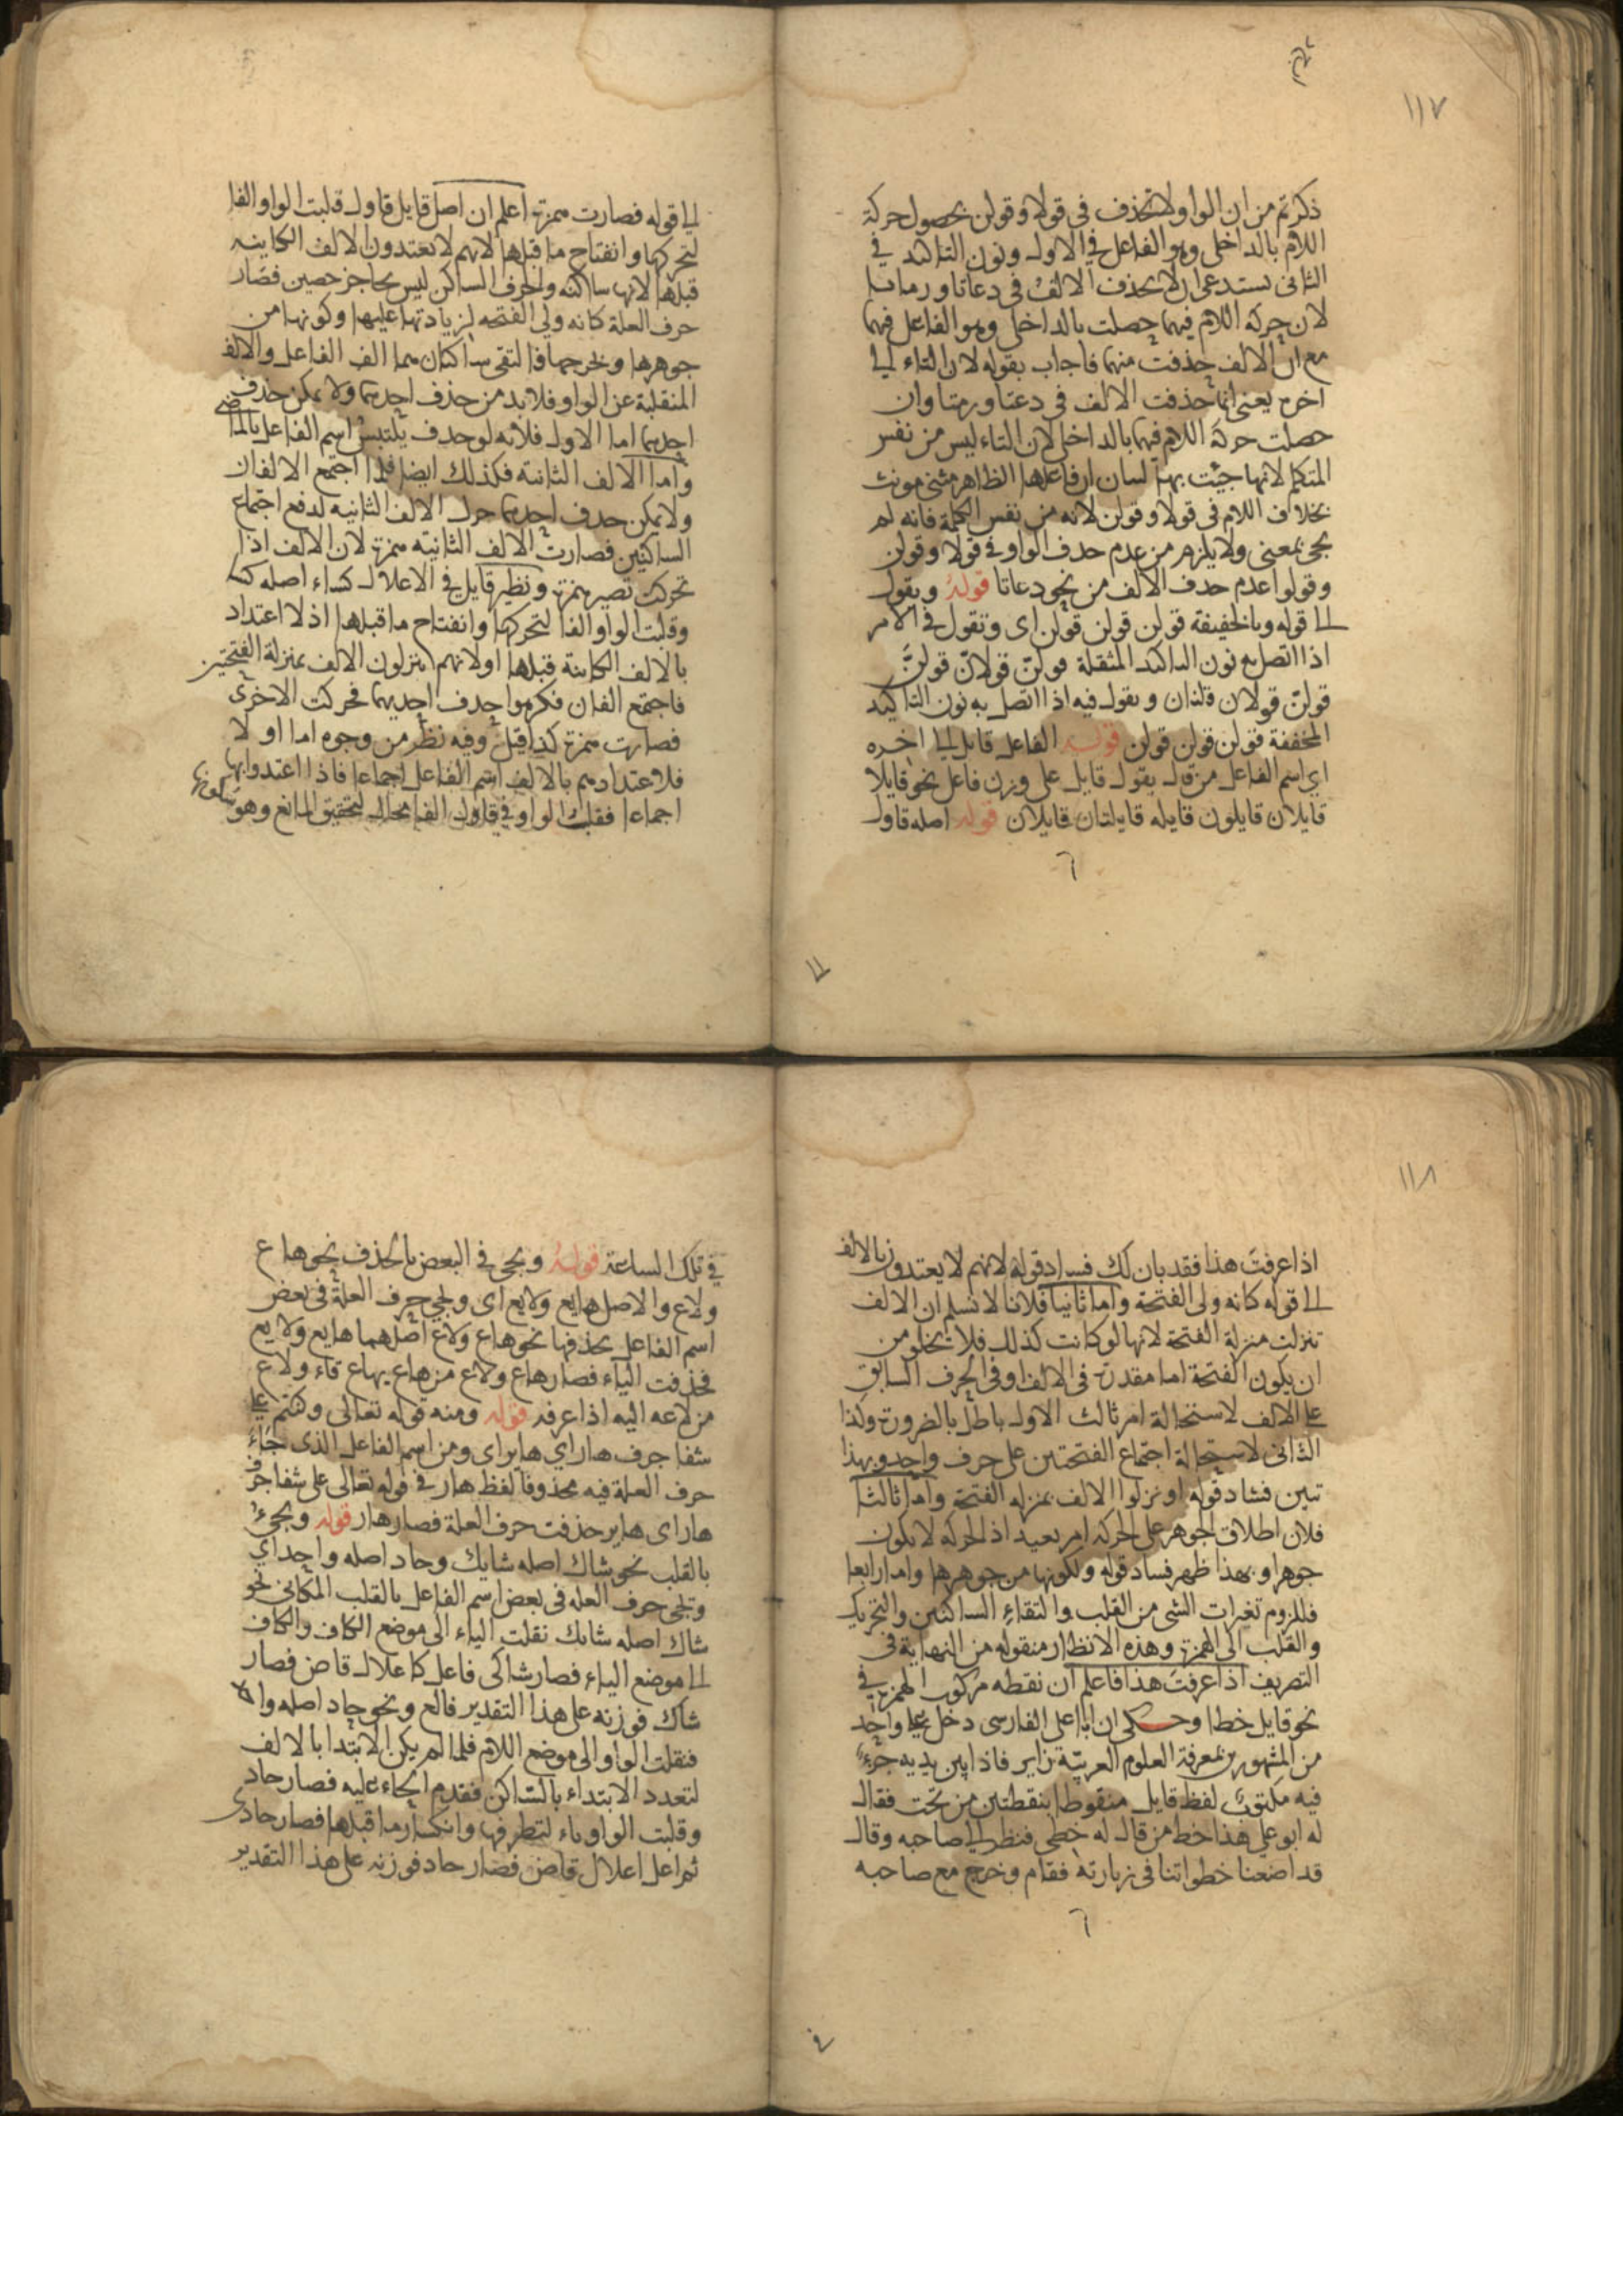 ١١٧
ذكرتم من ان الواو لا تحذف فى قولا وقولن بحصول حركة
اللام بالداخلى وهو الفاعل فى الاول ونون التاكيد فى
الثانى يستدعى ان لا تحذف الالف فى دعاتا ورماتا
لان حركة اللام فيهما حصلت بالداخلى وهو الفاعل فيهما
مع ان الالف حذفت منهما فاجاب بقوله لان التاء الى
اخره يعنى انما حذفت الالف فى دعتا ورمتا وان
حصلت حركة اللام فيهما بالداخلى لان التاء ليس من نفس
المتكلم لانها جيئت بها لبيان ان فاعلها الظاهر مثنى مونث
بخلاف اللام فى قولا وقولن لانه من نفس الكلمة فانه لم
يجئ بمعنى ولا يلزم من عدم حذف الواو فى قولا وقولن
وقولوا عدم حذف الالف من نحو دعاتا قوله ويقول
الى قوله وبالخفيفة قولن قولن قولن اى وتقول فى الامر
اذا اتصل مع نون التاكيد المثقلة قولنّ قولانّ قولنَّ
قولنّ قولان قلنان ويقول فيه اذا اتصل به نون التاكيد
المخففة قولن قولن قولن قوله الفاعل قايل الى اخره
اي اسم الفاعل من قال يقول قايل على وزن فاعل نحو قايلا
قايلان قايلون قايله قايلتان قايلان قوله اصله قاول
الى قوله فصارت همزة اعلم ان اصل قايل قاول قلبت الواو الفا
لتحركها وانفتاح ما قبلها لانهم لا يعتدون الالف الكاينه
قبلها لانها ساكنه والحرف الساكن ليس بحاجز حصين فصار
حرف العلة كانه ولى الفتحه لزيادتها عليها وكونها من
جوهرها ومخرجها فالتقى ساكنان هما الف الفاعل والالف
المنقلبة عن الواو فلا بد من حذف احديهما ولا يمكن حذف
احديهما اما الاول فلانه لو حذف يلتبس اسم الفاعل بالماضى
واما الالف الثانية فكذلك ايضا فلما اجتمع الالفان
ولا يمكن حذف احديهما حرك الالف الثانيه لدفع اجتماع
الساكنين فصارت الالف الثانيه همزة لان الالف اذا
تحركت تصير همزة ونظير قايل فى الاعلال كساء اصله كسا
وقلبت الواو الفا لتحركها وانفتاح ما قبلها اذ لا اعتداد
بالالف الكاينة قبلها اولانهم ينزلون الالف بمنزلة الفتحتين
فاجتمع الفان فكرهوا حذف احديهما فحركت الاخرى
فصارت همزة كذا قيل وفيه نظر من وجوه اما اولا
فلاعتدادهم بالالف اسم الفاعل اجماعا فاذا اعتدوا بها
اجماعا فقلب الواو فى قاول الفا محال لتحقيق المانع وهو
١١٨
اذا عرفت هذا فقد بان لك فساد قوله لانهم لا يعتدون بالالف
الى قوله كانه ولى الفتحة واما ثانيا فلانا لا نسلم ان الالف
تنزلت منزلة الفتحة لانها لو كانت كذلك فلا يخلو من
ان يكون الفتحة اما مقدرة فى الالف او فى الحرف السابق
على الالف لاستحالة امر ثالث الاول باطل بالضرورة وكذا
الثانى لاستحالة اجتماع الفتحتين على حرف واحد وبهذا
تبين فساد قوله او نزلوا الالف بمنزله الفتحة واما ثالثا
فلان اطلاق الجوهر على الحركة امر بعيد اذ الحركه لا يكون
جوهرا وبهذا ظهر فساد قوله ولكونها من جوهرها واما رابعا
فللزوم تغيرات الشى من القلب والتقاء الساكنين والتحريك
والقلب الى الهمزة وهذه الانظار منقوله من النهاية فى
التصريف اذا عرفت هذا فاعلم ان نقطه مركوب الهمزة فى
نحو قايل خطا وحكى ان ابا على الفارسى دخل على واحد
من المشهورين بمعرفة العلوم العربيّة زاير فاذا بين يديه جزء
فيه مكتوب لفظ قايل منقوطا بنقطتين من تحت فقال
له ابو على هذا خط من قال له خطى فنظر الى صاحبه وقال
قد اضعنا خطواتنا فى زيارته فقام وخرج مع صاحبه
فى تلك الساعة قوله ويجى فى البعض بالحذف نحو هاع
ولاع والاصل هايع ولايع اى ويجي حرف العلة فى بعض
اسم الفاعل بحذفها نحو هاع ولاع اصلهما هايع ولايع
فحذفت الياء فصار هاع ولاع من هاع يهاع قاء ولاع
من لاعه اليه اذا عرفه قوله ومنه قوله تعالى وكنتم على
شفا جرف هار اي هاير اى ومن اسم الفاعل الذى جاء
حرف العلة فيه محذوفا لفظ هار فى قوله تعالى على شفا جرف
هار اى هاير حذفت حرف العلة فصار هار قوله ويجيء
بالقلب نحو شاك اصله شايك وحاد اصله واحد اي
وتجى حرف العله فى بعض اسم الفاعل بالقلب المكانى نحو
شاك اصله شايك نقلت الياء الى موضع الكاف والكاف
الى موضع الياء فصار شاكى فاعل كاعلال قاض فصار
شاك فوزنه على هذا التقدير فالع ونحو حاد اصله واحد
فنقلت الواو الى موضع اللام فلما لم يكن الابتدا بالالف
لتعدد الابتداء بالساكن فقدم الحاء عليه فصار حادو
وقلبت الواو ياء لتطرفها وانكسار ما قبلها فصار حادى
ثم اعل اعلال قاض فصار حاد فوزنه على هذا التقدير